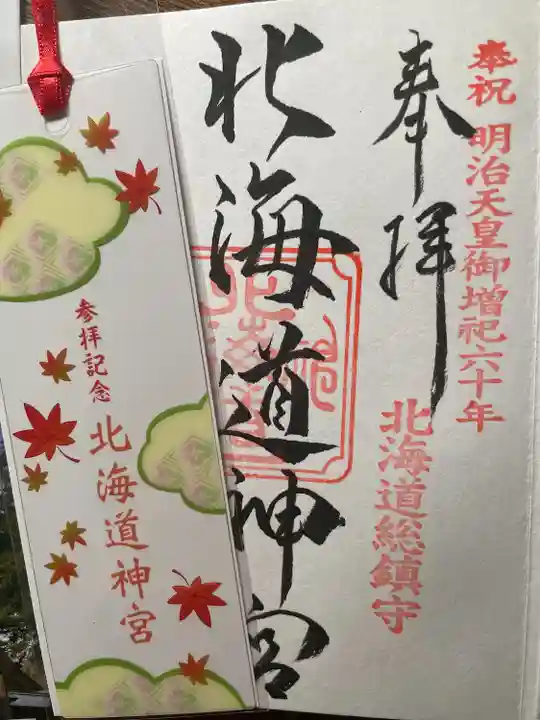 奉祝 明治天皇御増祀六十年
奉拝
北海道総鎮守
北海道神宮
参拝記念
北海道神宮